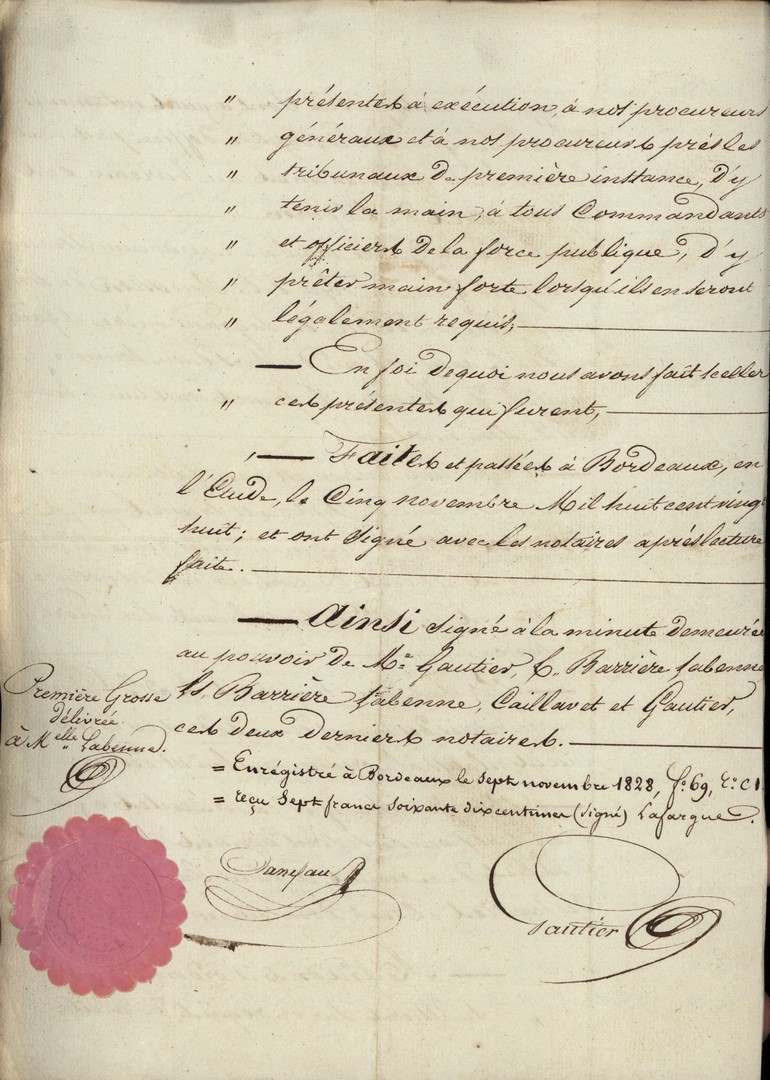 " présentes à exécution, à nos procureurs
" généraux et à nos procureurs près les
" tribunaux de première instance, d'y
" tenir la main, à tous Commandants
" et officiers de la force publique, d'y
" prêter main forte lorsqu'ils en seront
" légalement requis;
— En foi de quoi nous avons fait sceller
" ces présentes qui furent,
, — Faites et passées à Bordeaux, en
l'Etude, le Cinq novembre Mil huit cent vingt
huit; et ont signé avec les notaires après lecture
faite.
— Ainsi signé à la minute demeurée
au pouvoir de Me Gautier, C. Barrière Labenne
Barrière Labenne, Caillavet et Gautier,
ces deux derniers notaires.
Première Grosse
délivrée
à Melle Labenne.
= Enrégistré à Bordeaux le sept novembre 1828, fo 69, ro C 1.
= reçu Sept francs soixante dix centimes (signé) Lafargue.
Gautier